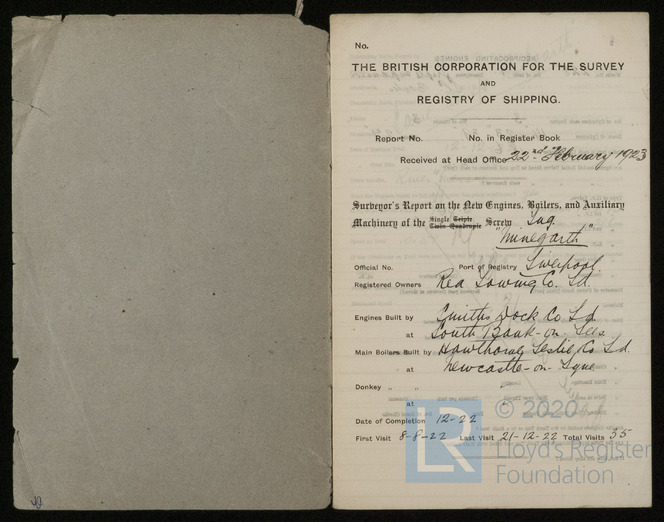 No.
THE BRITISH CORPORATION FOR THE SURVEY
AND
REGISTRY OF SHIPPING.
Report No. No. in Register Book
Received at Head Office 22nd February 1923
Surveyor's Report on the New Engines, Boilers, and Auxiliary
Machinery of the Single Triple Twin Quadruple Screw Tug
"Ninegarth"
Official No. Port of Registry Liverpool.
Registered Owners Rea Towing Co. Ld.
Engines Built by Smiths Dock Co Ld.
at South Bank-on-Tees
Main Boilers Built by Hawthorn, Leslie Co Ld.
at Newcastle-on-Tyne.
Donkey " "
at
Date of Completion 12-22
First Visit 8-8-22 Last Visit 21-12-22 Total Visits 35
LR © 2020
Lloyd's Register
Foundation